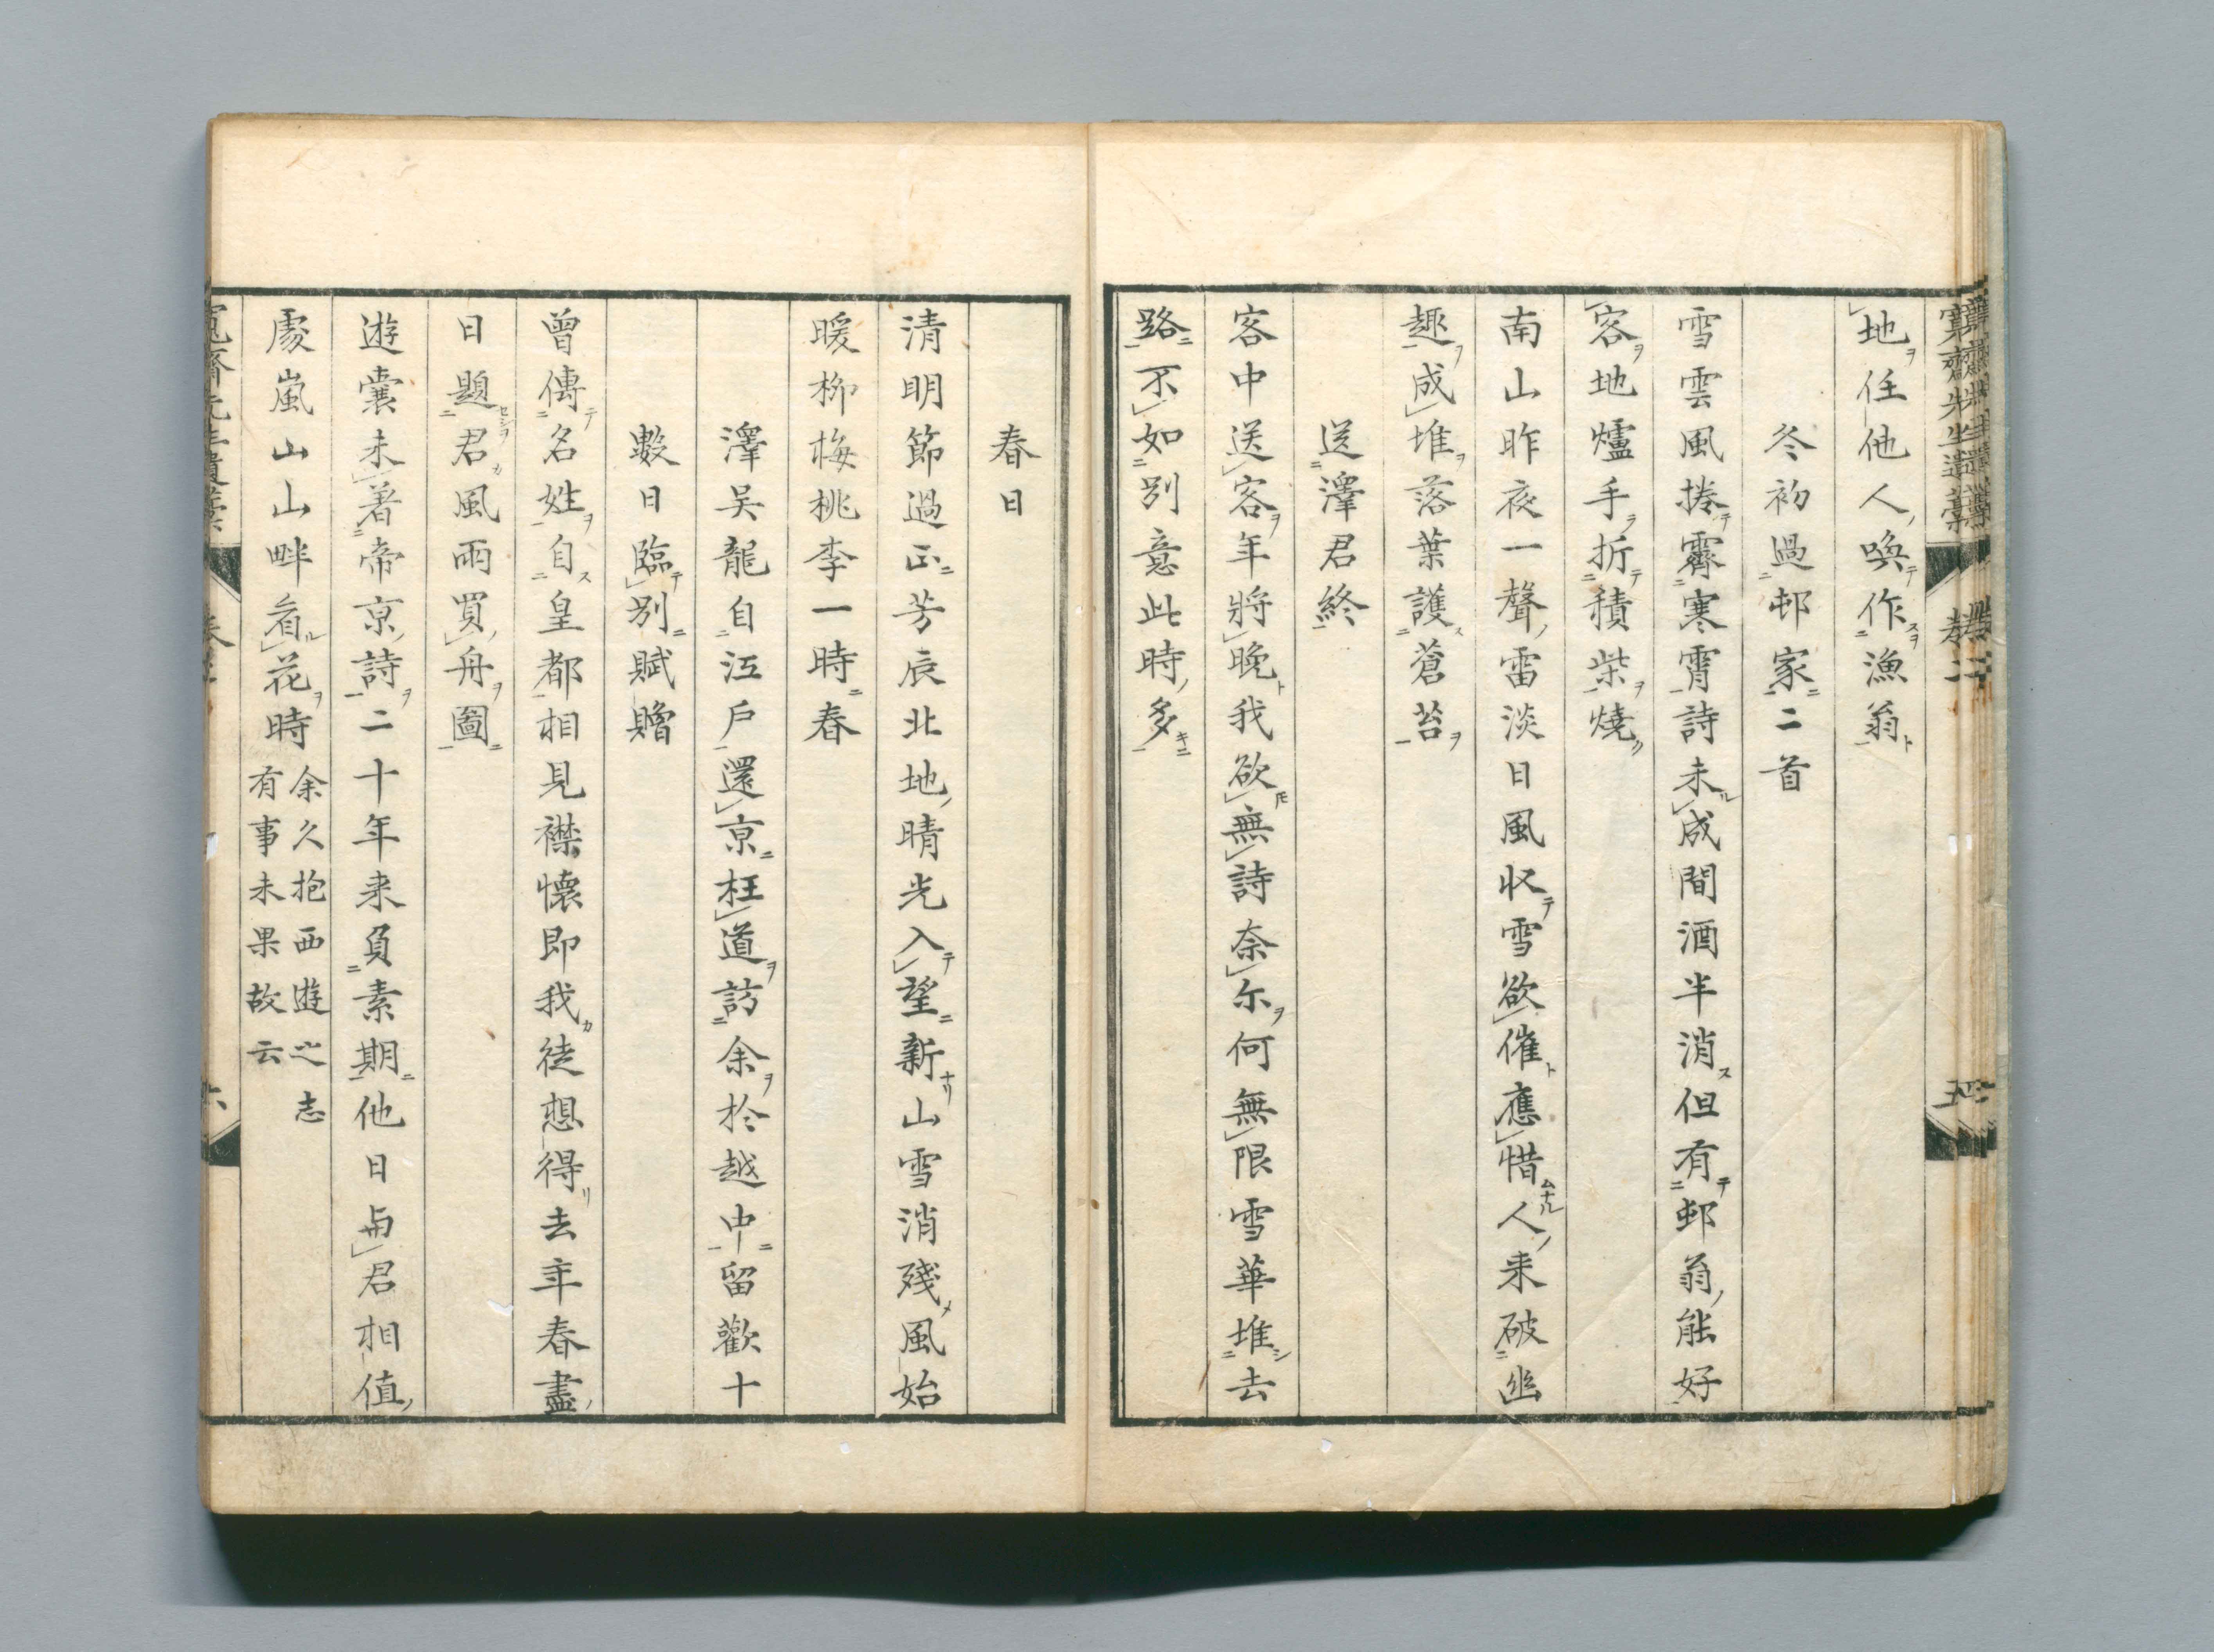 地任他人喚作漁翁
冬初過邨家二首
雪雲風捲霽寒霄詩未成間酒半消但有邨翁能好
客地爐手折積柴燒
南山昨夜一聲雷淡日風収雪欲催應惜人来破幽
趣成堆落葉護蒼苔
送澤君終
客中送客年將晚我欲無詩奈尓何無限雪華堆去
路不如別意此時多
春日
清明節過正芳辰北地晴光入望新山雪消殘風始
暖柳梅桃李一時春
澤吴龍自江戶還京枉道訪余於越中留歡十
數日臨別賦贈
曾傳名姓自皇都相見襟懷即我徒想得去年春盡
日題君風雨買舟圖
遊囊未著帝京詩二十年来負素期他日与君相值
處嵐山山畔看花時
余久抱西遊之志
有事未果故云